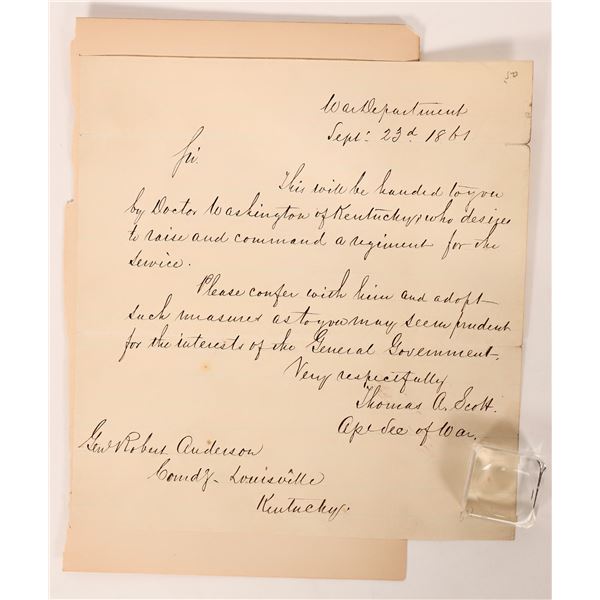 50
War Department
Sept. 23d 1861
Sir.
This will be handed to you
by Doctor Washington of Kentucky, who desires
to raise and command a regiment for the
service.
Please confer with him and adopt
such measures as to you may seem prudent
for the interests of the General Government.
Very respectfully
Thomas A. Scott.
Ast Sec of War.
Genl Robert Anderson
Comdg - Louisville
Kentucky.